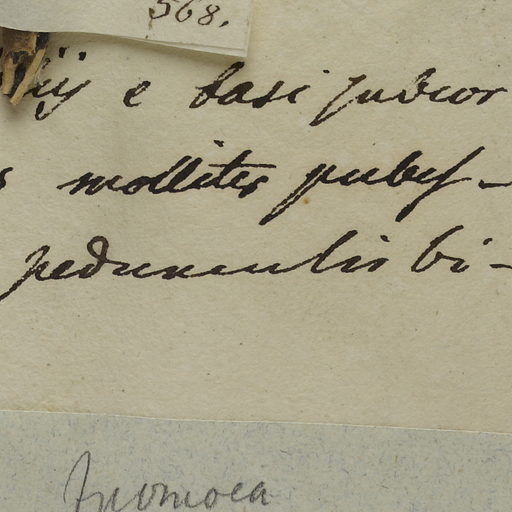 568.
iij e basi subcor
molliter pubes-
pedunculis bi-
Ipomoea